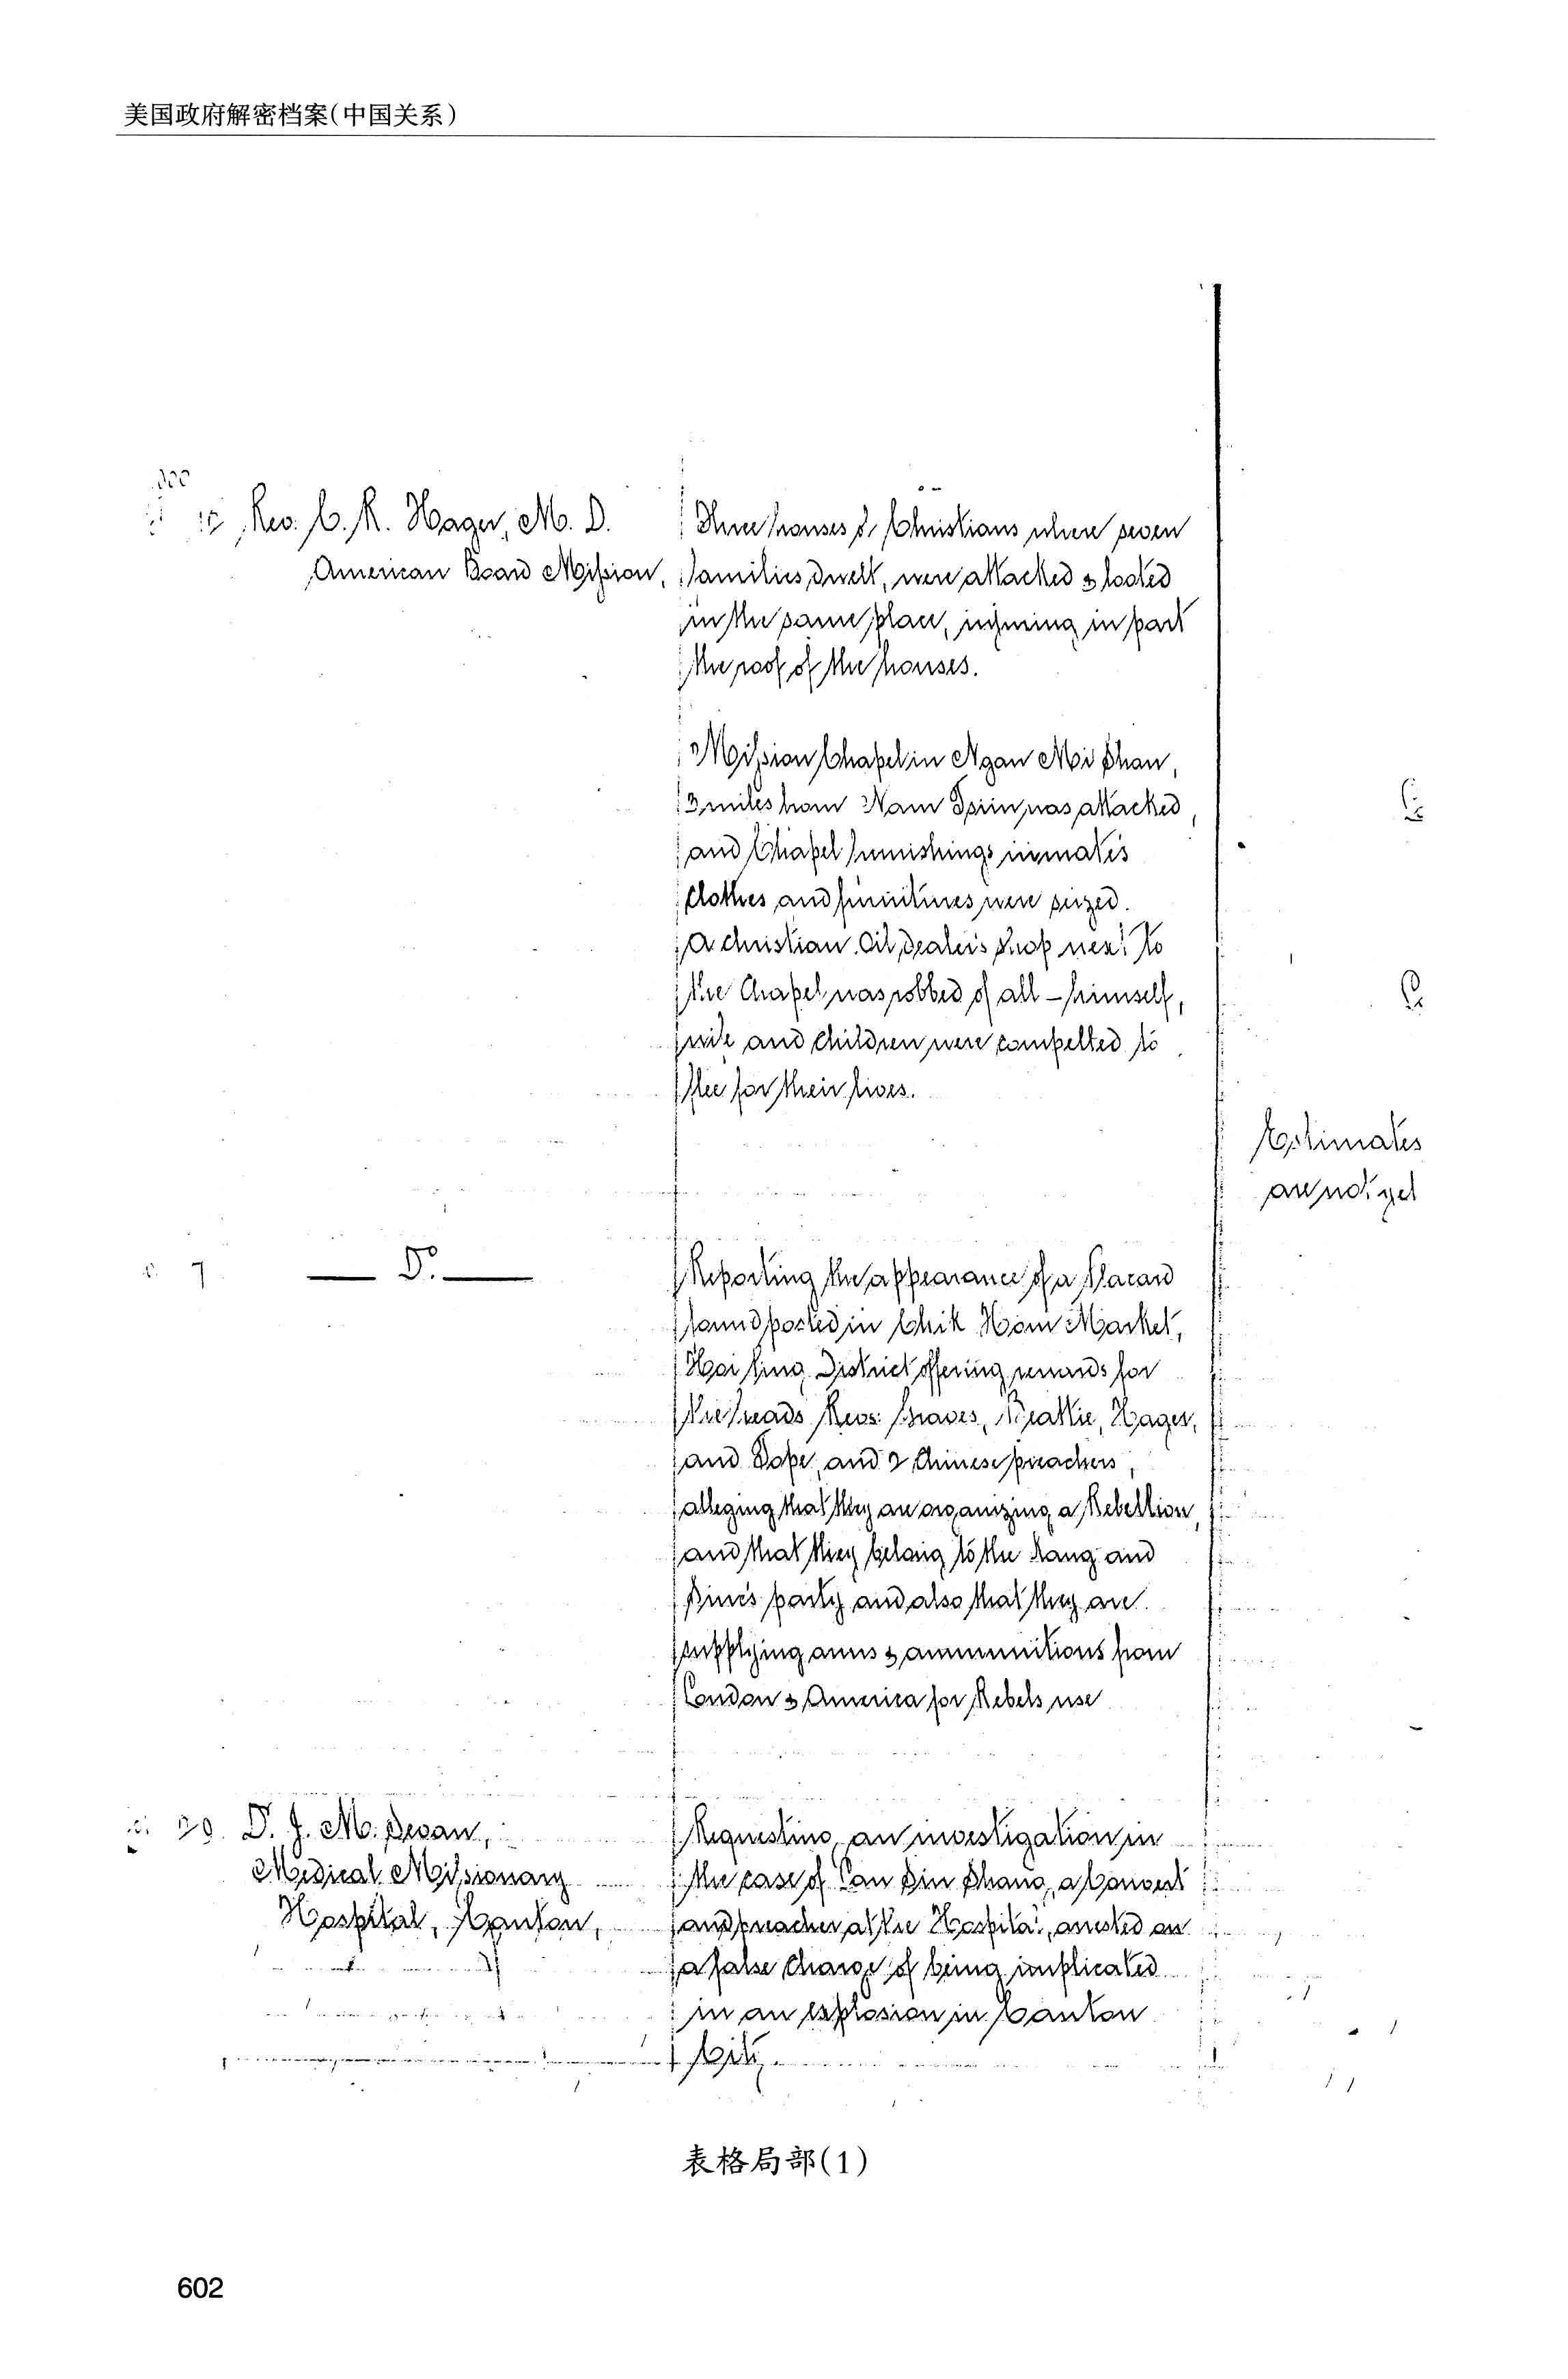 美国政府解密档案(中国关系)
Rev. C. R. Hager, M. D.
American Board Mission,
Three houses of Christians where seven
families dwelt, were attacked & looted
in the same place, injuring in part
the roof of the houses.
Mission Chapel in Ngan Mi Shan,
3 miles from Nam was attacked,
and Chapel furnishings inmates
clothes and furnitures were seized.
A christian Oil dealer's shop next to
the Chapel was robbed of all – himself,
wife and children were compelled to
flee for their lives.
Estimates
are not yet
7 — Do. —
Reporting the appearance of a Placard
found posted in Chik Hom Market,
Hoi Ping District offering rewards for
the heads Revs: Graves, Beattie, Hager,
and Pope, and 2 Chinese preachers,
alleging that they are organizing a Rebellion,
and that they belong to the Kang and
party and also that they are
supplying arms & ammunitions from
London & America for Rebels use
29 D. J. M. Swan,
Medical Missionary
Hospital, Canton,
Requesting an investigation in
the case of a Convert
and preacher at the Hospital, arrested on
a false charge of being implicated
in an explosion in Canton
City.
表格局部(1)
602